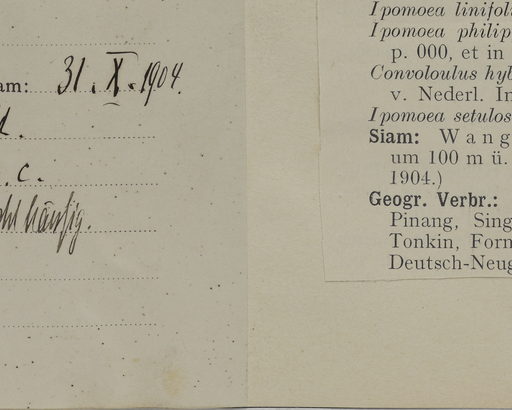 am: 31.X.1904.
. c.
häufig.
Ipomoea linifoli
Ipomoea philip
p. 000, et in
Convoloulus hyb
v. Nederl. In
Ipomoea setulos
Siam: Wang
um 100 m ü.
1904.)
Geogr. Verbr.:
Pinang, Sing
Tonkin, Form
Deutsch-Neug